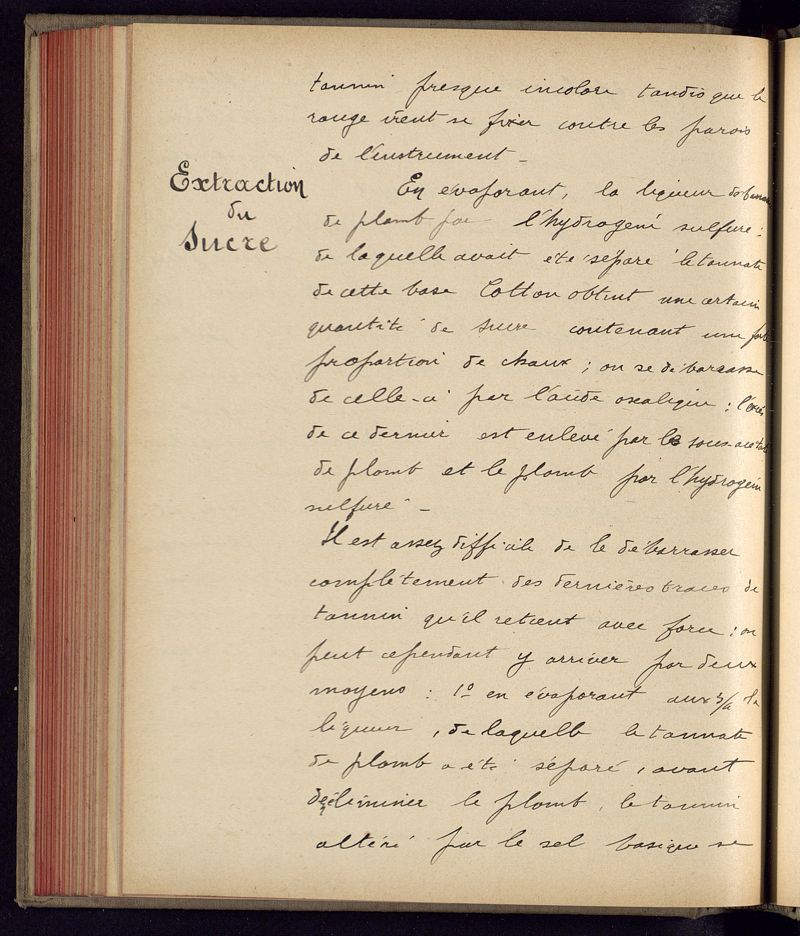 tannin presque incolore tandis que le
rouge vient se fixer contre les parois
de l'instrument _
Extraction
du
Sucre
En évaporant, la liqueur
de plomb par l'hydrogène sulfuré :
de laquelle avait été séparé le tannate
de cette base Cotton obtint une certain
quantité de sucre contenant une forte
proportion de chaux ; on se débarrasse
de celle-ci par l'acide oxalique : l'excès
de ce dernier est enlevé par le sous-acétate
de plomb et le plomb par l'hydrogène
sulfuré _
Il est assez difficile de le débarrasser
complètement des dernières traces de
tannin qu'il retient avec force ; on
peut cependant y arriver par deux
moyens : 1º en évaporant aux 3/4 la
liqueur, de laquelle le tannate
de plomb a été séparé, avant
d'éliminer le plomb, le tannin
altéré par le sel basique se